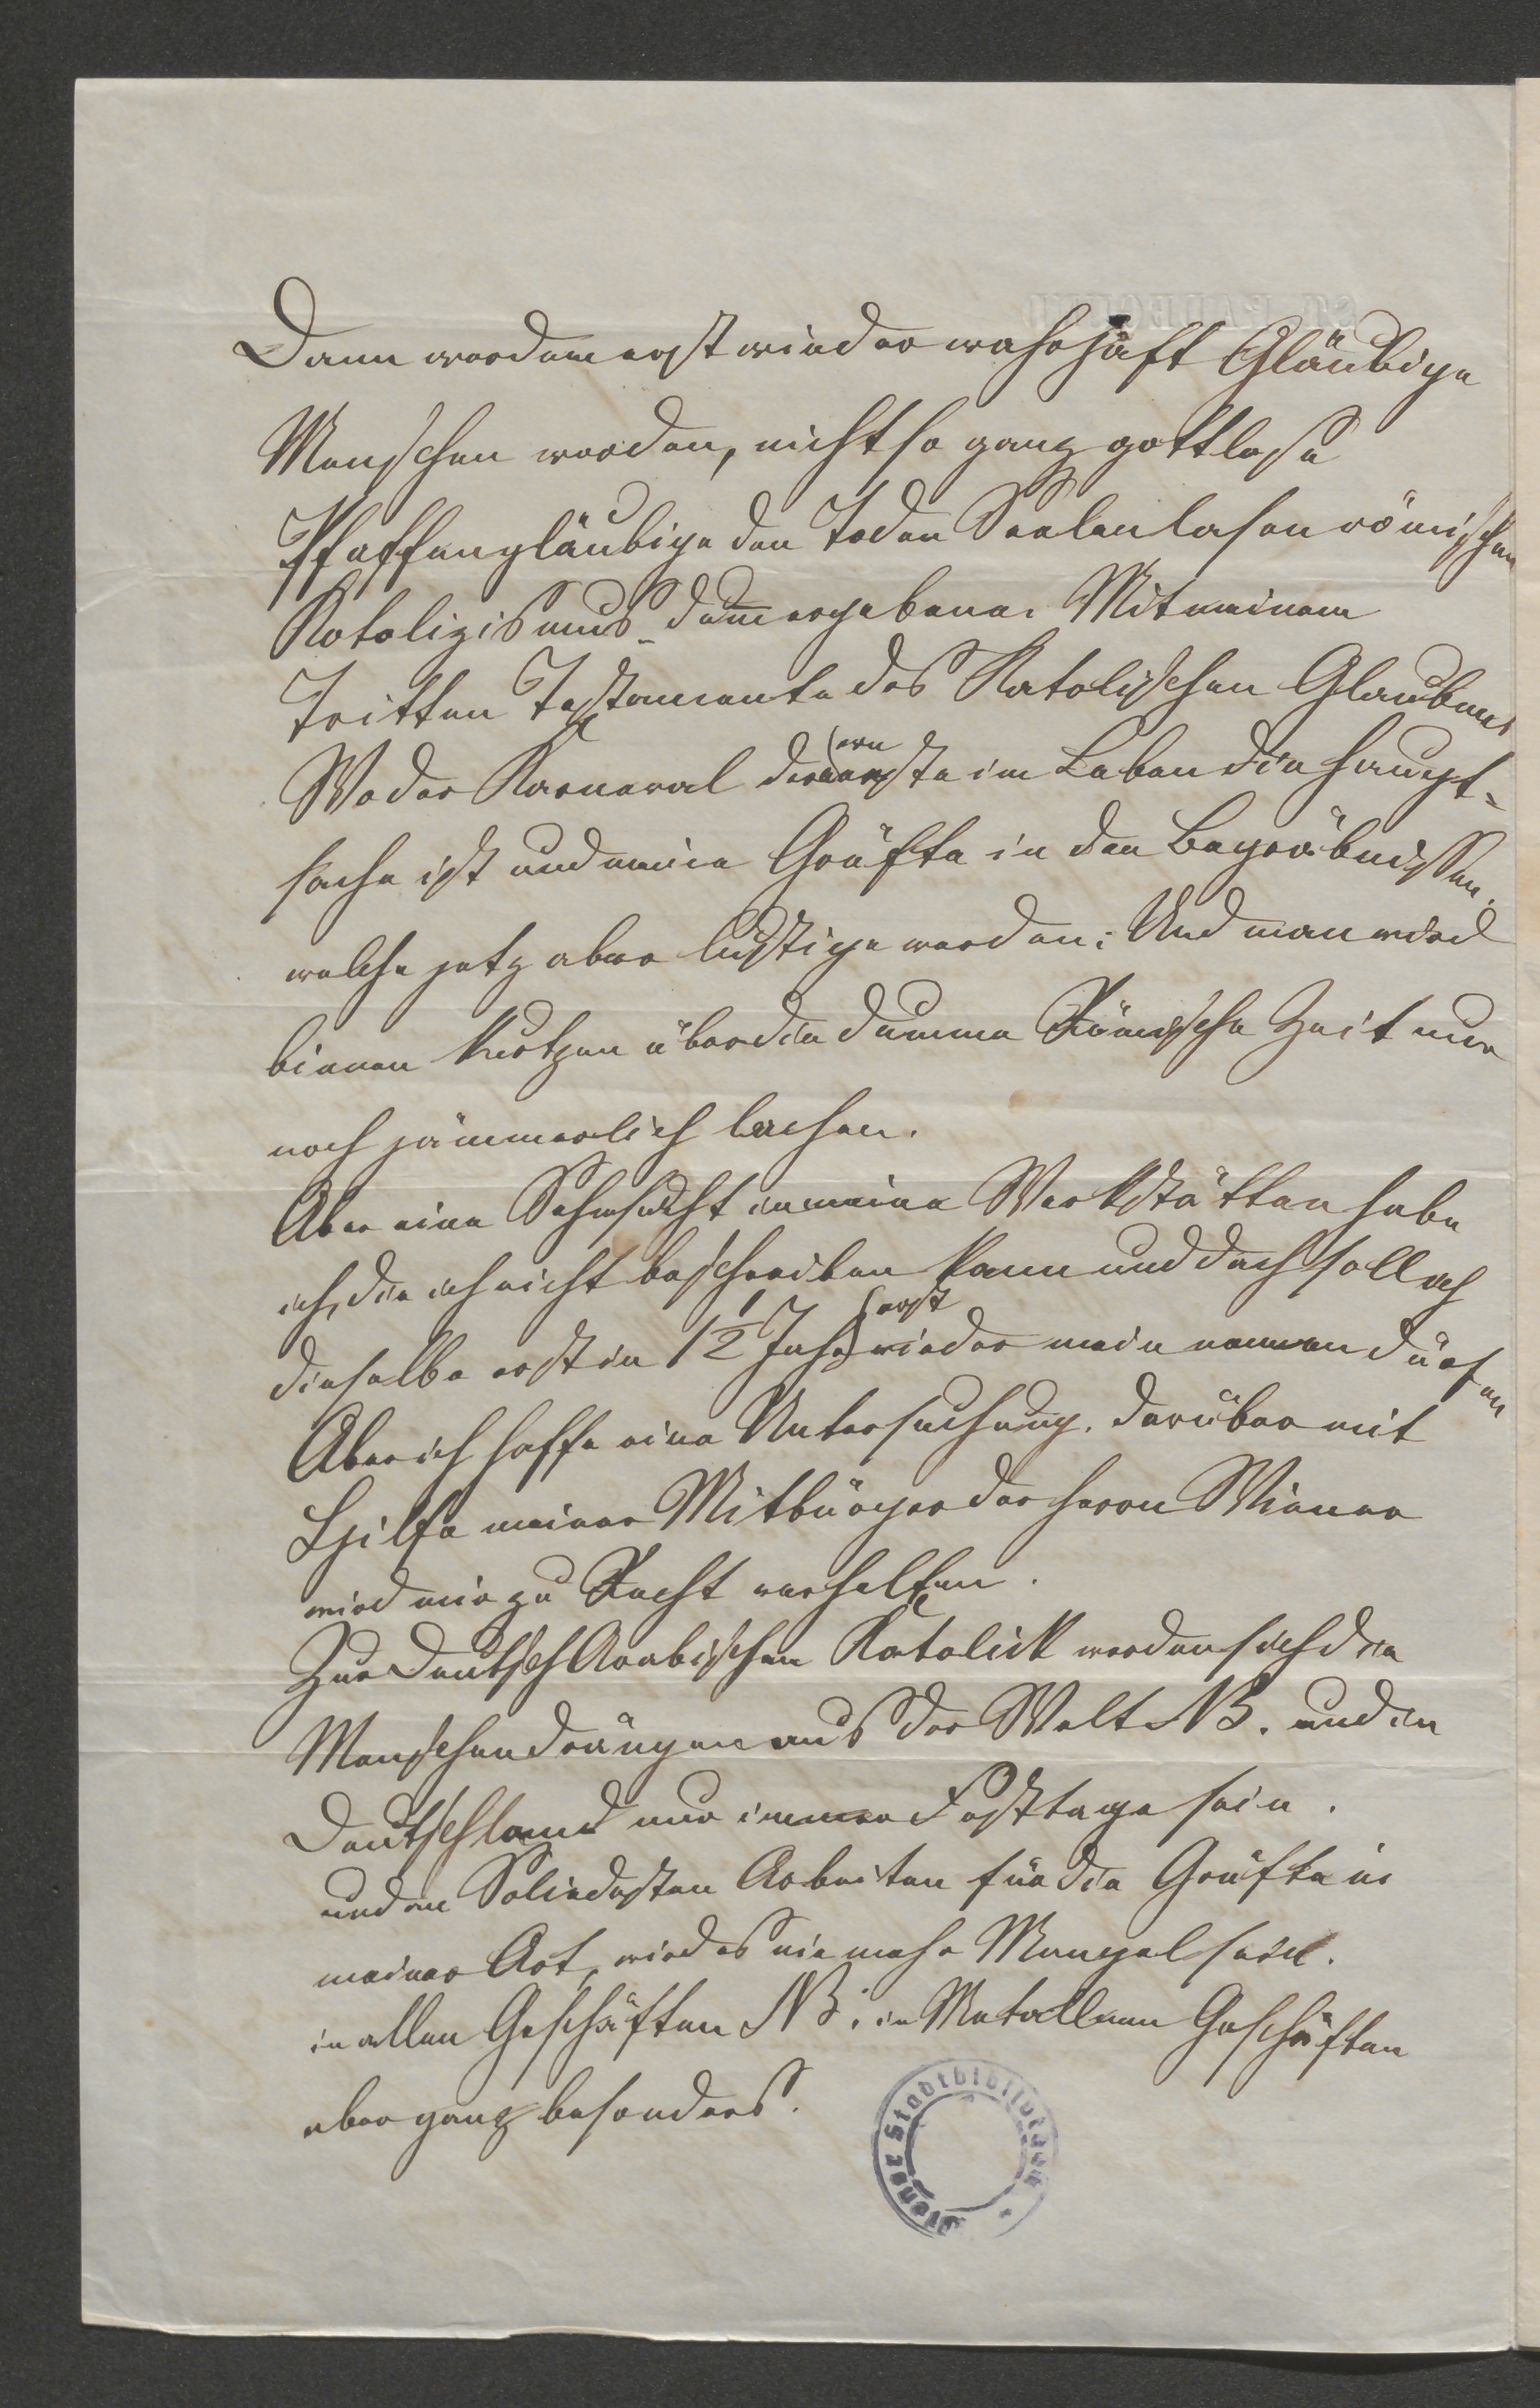 Dann werdem erst wieder wahrhaft Gläubige
Menschen werden, nicht so ganz gottlose
Pfaffengläubige den Toden Seelenlosen römischen
Katolizismus dummergebene. Mit meinem
Tritten Testamente des Katolischen Glaubens
Wo der Karneval der
ern
ernste im Leben die Haupt-
sache ist und meine Grüfte in den Begräbnissen.
welche jetz aber lustige werden: Und man wird
binnen kurtzen über die dumme Römische Zeit nur
noch jämmerlich lachen.
Aber eine Sehnsucht in meine Werkstätten habe
ich, die ich nicht beschreiben kann und doch soll ich
erst
dieselbe erst in 1½ Jahr wieder mein nennen dürfen
Aber ich hoffe eine Untersuchung. darüber mit
Hilfe meiner Mitbürger der Herrn Wiener
wird mir zu Recht verhelfen.
Zur Deutsch Arabischen Katolick werden sich die
Menschen drängen aus der Welt NB. und in
Deutschland nur immer Festtage sein.
und an Soliedesten Arbeiten für die Grüfte in
meiner Art, wird es nie mehr Mangel sein.
in allen Geschäften NB: in Metallnen Geschäften
aber ganz besonders.
Wiener Stadtbibliothek